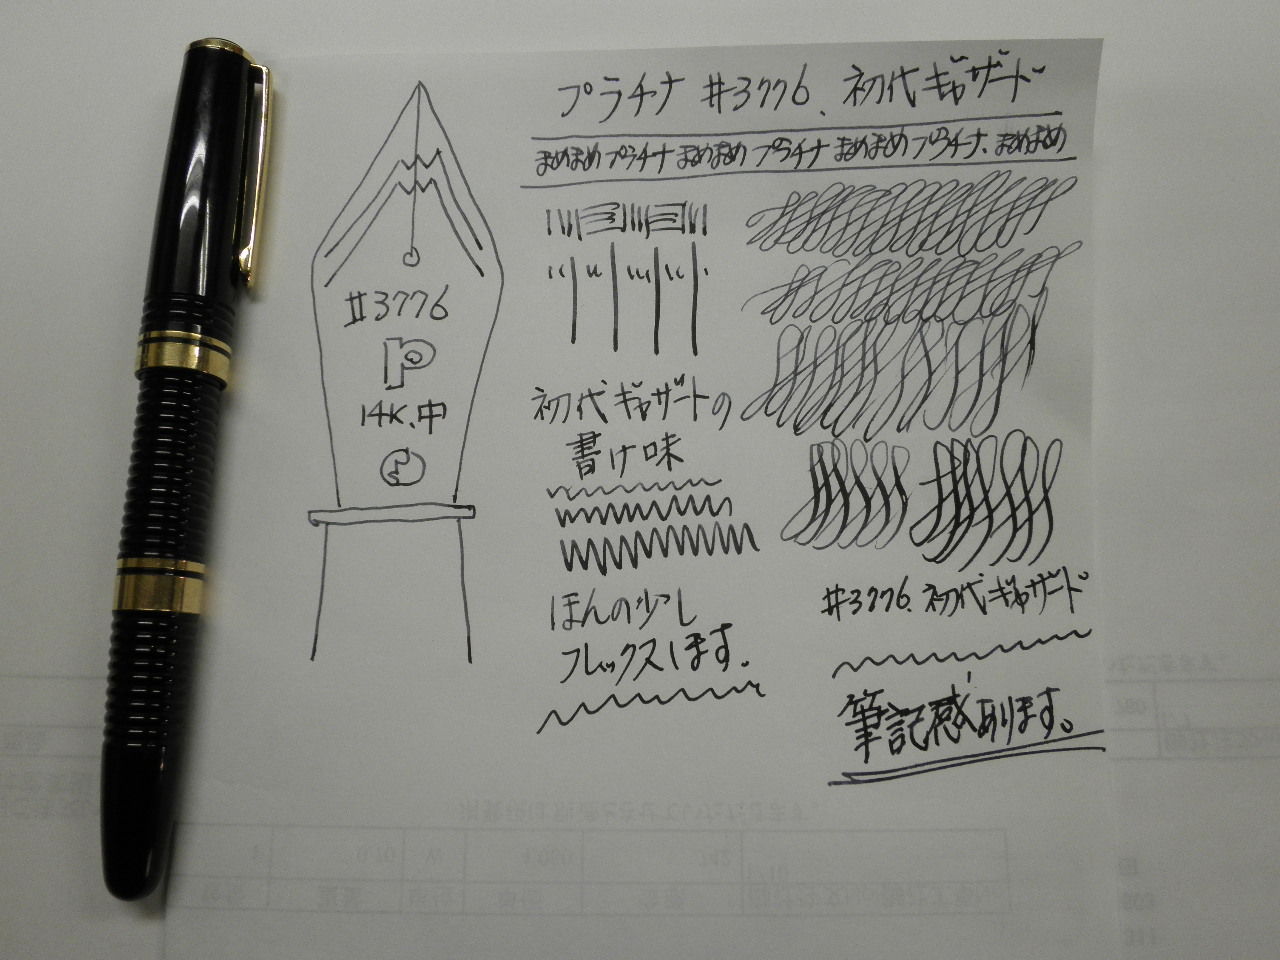 プラチナ #3776、初代ギャザード
まめまめプラチナまめまめプラチナまめまめプラチナ、まめまめ
#3776
P
14K、中
初代ギャザードの
書け味
ほんの少し
フレックスします。
#3776、初代ギャザード
筆記感あります。